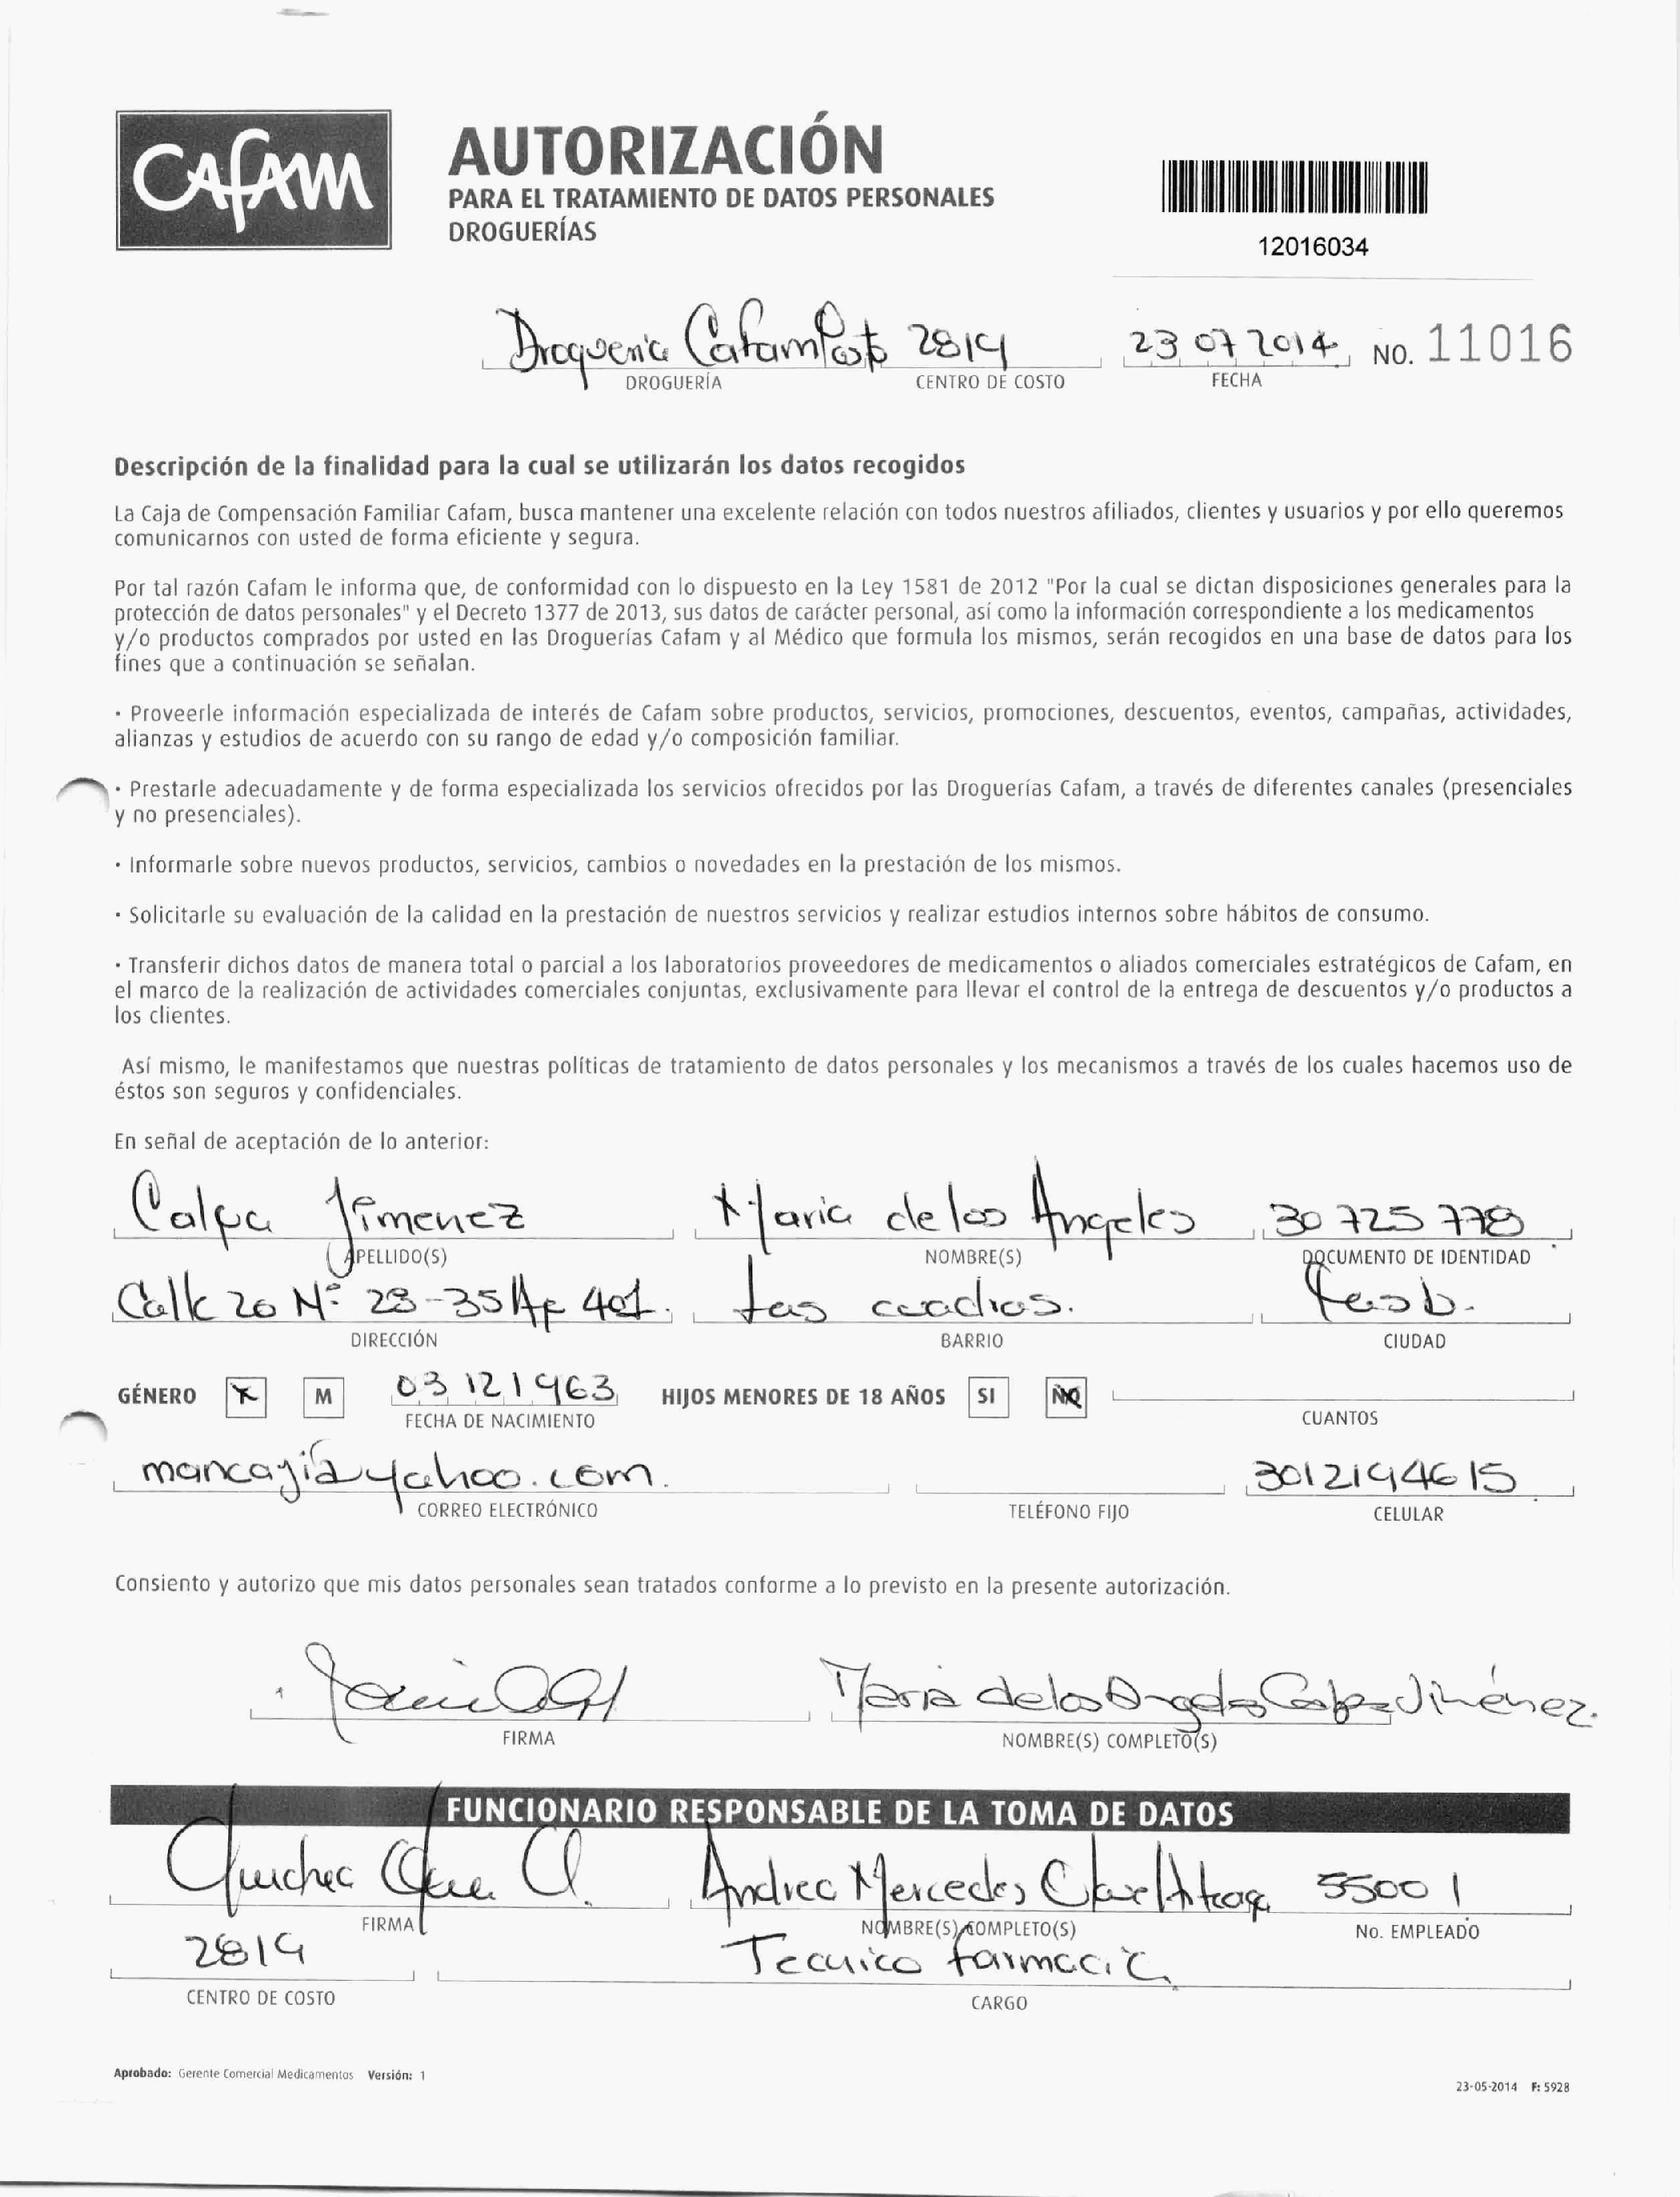 CAFAM
AUTORIZACIÓN
PARA EL TRATAMIENTO DE DATOS PERSONALES
DROGUERÍAS
12016034
Drogueria Cafam Pasto 2819 23 07 2014 NO. 11016
DROGUERÍA CENTRO DE COSTO FECHA
Descripción de la finalidad para la cual se utilizarán los datos recogidos
La Caja de Compensación Familiar Cafam, busca mantener una excelente relación con todos nuestros afiliados, clientes y usuarios y por ello queremos
comunicarnos con usted de forma eficiente y segura.
Por tal razón Cafam le informa que, de conformidad con lo dispuesto en la Ley 1581 de 2012 "Por la cual se dictan disposiciones generales para la
protección de datos personales" y el Decreto 1377 de 2013, sus datos de carácter personal, así como la información correspondiente a los medicamentos
y/o productos comprados por usted en las Droguerías Cafam y al Médico que formula los mismos, serán recogidos en una base de datos para los
fines que a continuación se señalan.
· Proveerle información especializada de interés de Cafam sobre productos, servicios, promociones, descuentos, eventos, campañas, actividades,
alianzas y estudios de acuerdo con su rango de edad y/o composición familiar.
· Prestarle adecuadamente y de forma especializada los servicios ofrecidos por las Droguerías Cafam, a través de diferentes canales (presenciales
y no presenciales).
· Informarle sobre nuevos productos, servicios, cambios o novedades en la prestación de los mismos.
· Solicitarle su evaluación de la calidad en la prestación de nuestros servicios y realizar estudios internos sobre hábitos de consumo.
· Transferir dichos datos de manera total o parcial a los laboratorios proveedores de medicamentos o aliados comerciales estratégicos de Cafam, en
el marco de la realización de actividades comerciales conjuntas, exclusivamente para llevar el control de la entrega de descuentos y/o productos a
los clientes.
Así mismo, le manifestamos que nuestras políticas de tratamiento de datos personales y los mecanismos a través de los cuales hacemos uso de
éstos son seguros y confidenciales.
En señal de aceptación de lo anterior:
Calpa Jimenez Maria de los Angeles 30 725 778
APELLIDO(S) NOMBRE(S) DOCUMENTO DE IDENTIDAD
Calle 20 Nº 23-35 Ap 401. Las cuadras.
DIRECCIÓN BARRIO CIUDAD
GÉNERO M 03 12 1963 HIJOS MENORES DE 18 AÑOS SI NO
FECHA DE NACIMIENTO CUANTOS
mancaji@yahoo.com. 3012194615
CORREO ELECTRÓNICO TELÉFONO FIJO CELULAR
Consiento y autorizo que mis datos personales sean tratados conforme a lo previsto en la presente autorización.
Maria de los Angeles Calpa Jiménez.
FIRMA NOMBRE(S) COMPLETO(S)
FUNCIONARIO RESPONSABLE DE LA TOMA DE DATOS
Andrea Mercedes 55001
FIRMA NOMBRE(S) COMPLETO(S) No. EMPLEADO
2819 Tecnico farmacia
CENTRO DE COSTO CARGO
Aprobado: Gerente Comercial Medicamentos Versión: 1
23-05-2014 F: 5928